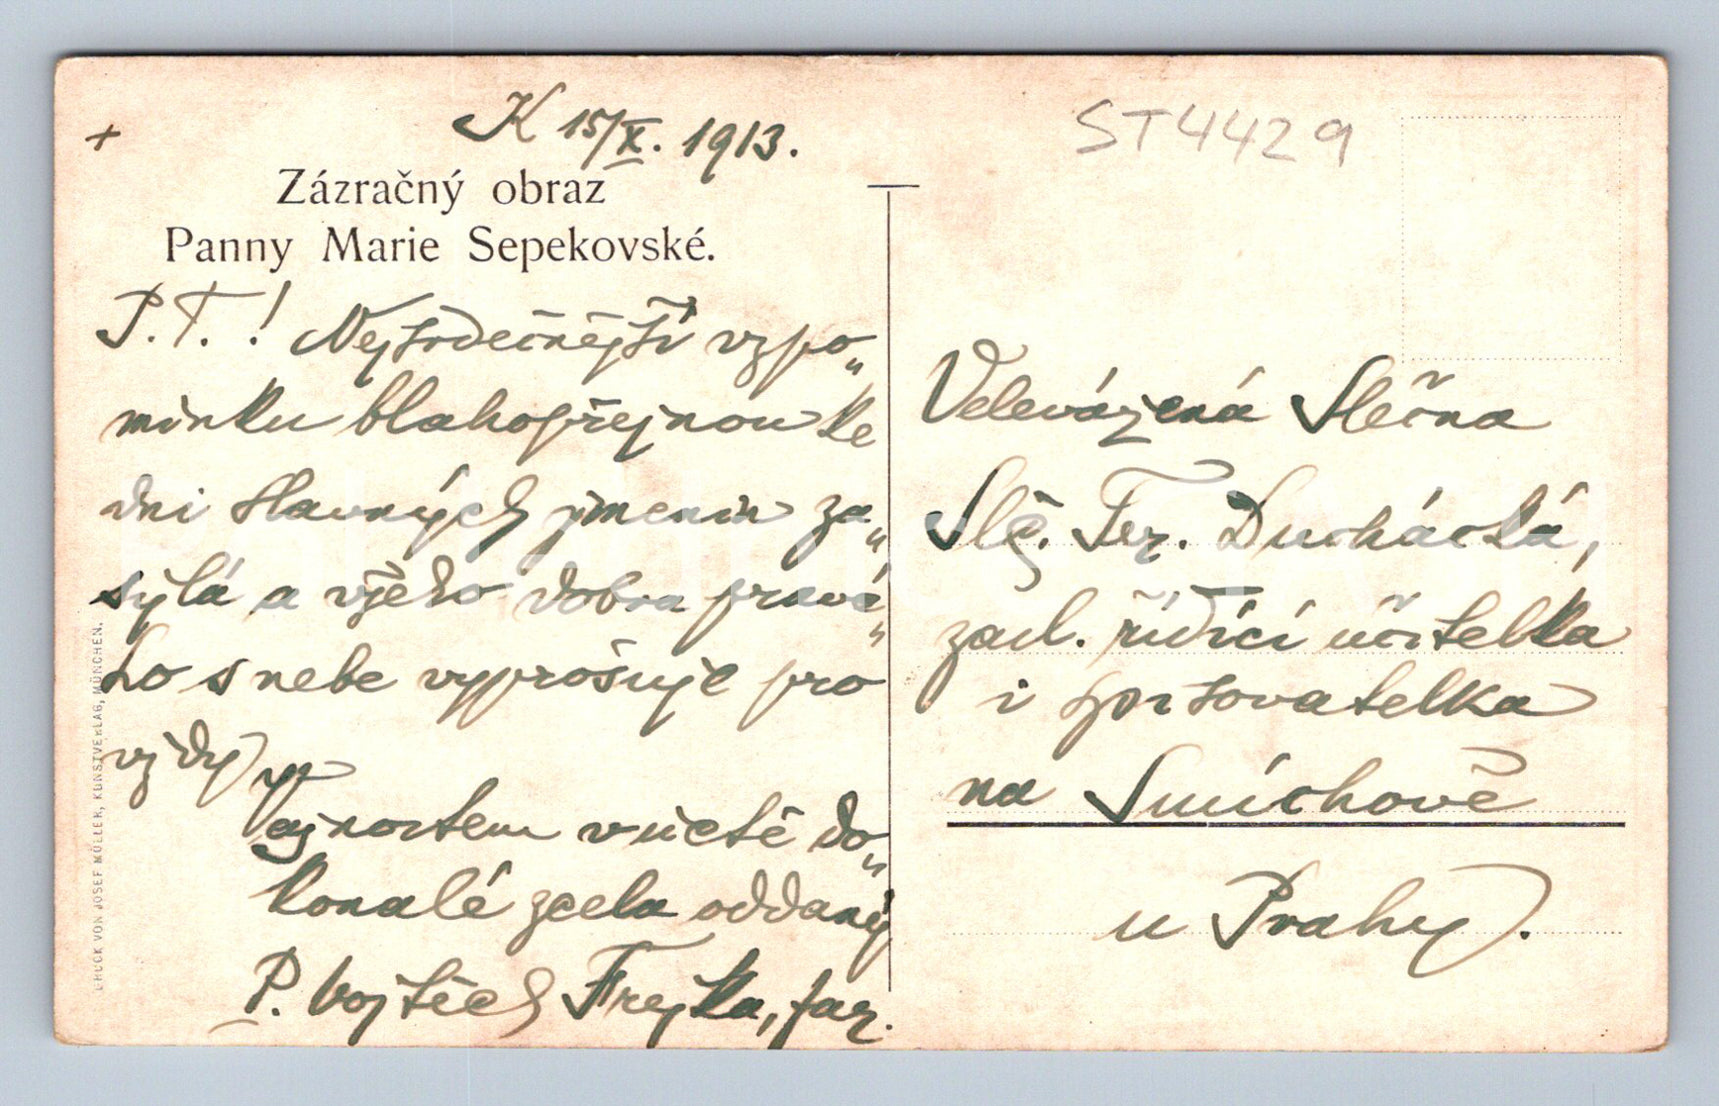 +
K 15/X. 1913.
Zázračný obraz
Panny Marie Sepekovské.
P.T.! Nejsrdečnější vzpo„
mínku blahopřejnou ke
dni slavných jmenin za„
sýlá a všeho dobra pravé„
ho s nebe vyprošuje pro
vždy
Vejnostem v úctě do„
konalé zcela oddaný
P. Vojtěch Frejka, far.
DRUCK VON JOSEF MÜLLER, KUNSTVERLAG, MÜNCHEN.
ST4429
Velevážená Slečna
Slč. Ter. Ducháčská,
zasl. řídící učitelka
i spisovatelka
na Smíchově
u Prahy.